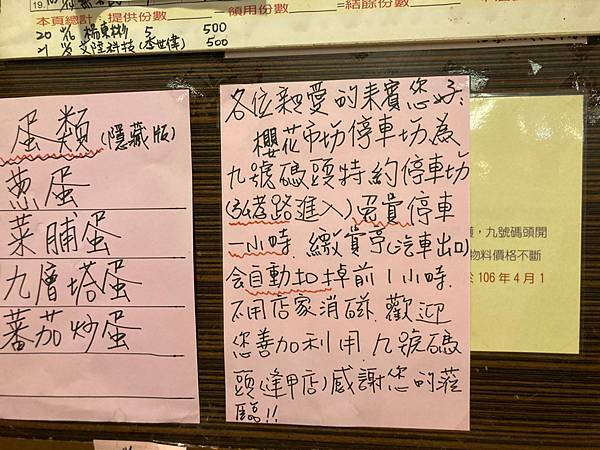 本頁總計：提供份數 －領用份數 ＝結餘份數
楊東彬 5 500
500
蛋類(隱藏版)
蔥蛋
菜脯蛋
九層塔蛋
蕃茄炒蛋
各位親愛的來賓您好：
櫻花市場停車場為
九號碼頭特約停車場
路進入)免費停車
一小時.繳費亭(汽車出口)
會自動扣掉前1小時.
不用店家消磁.歡迎
您善加利用.九號碼
頭(逢甲店)感謝您的蒞
臨!!
，九號碼頭開
物料價格不斷
於106年4月1